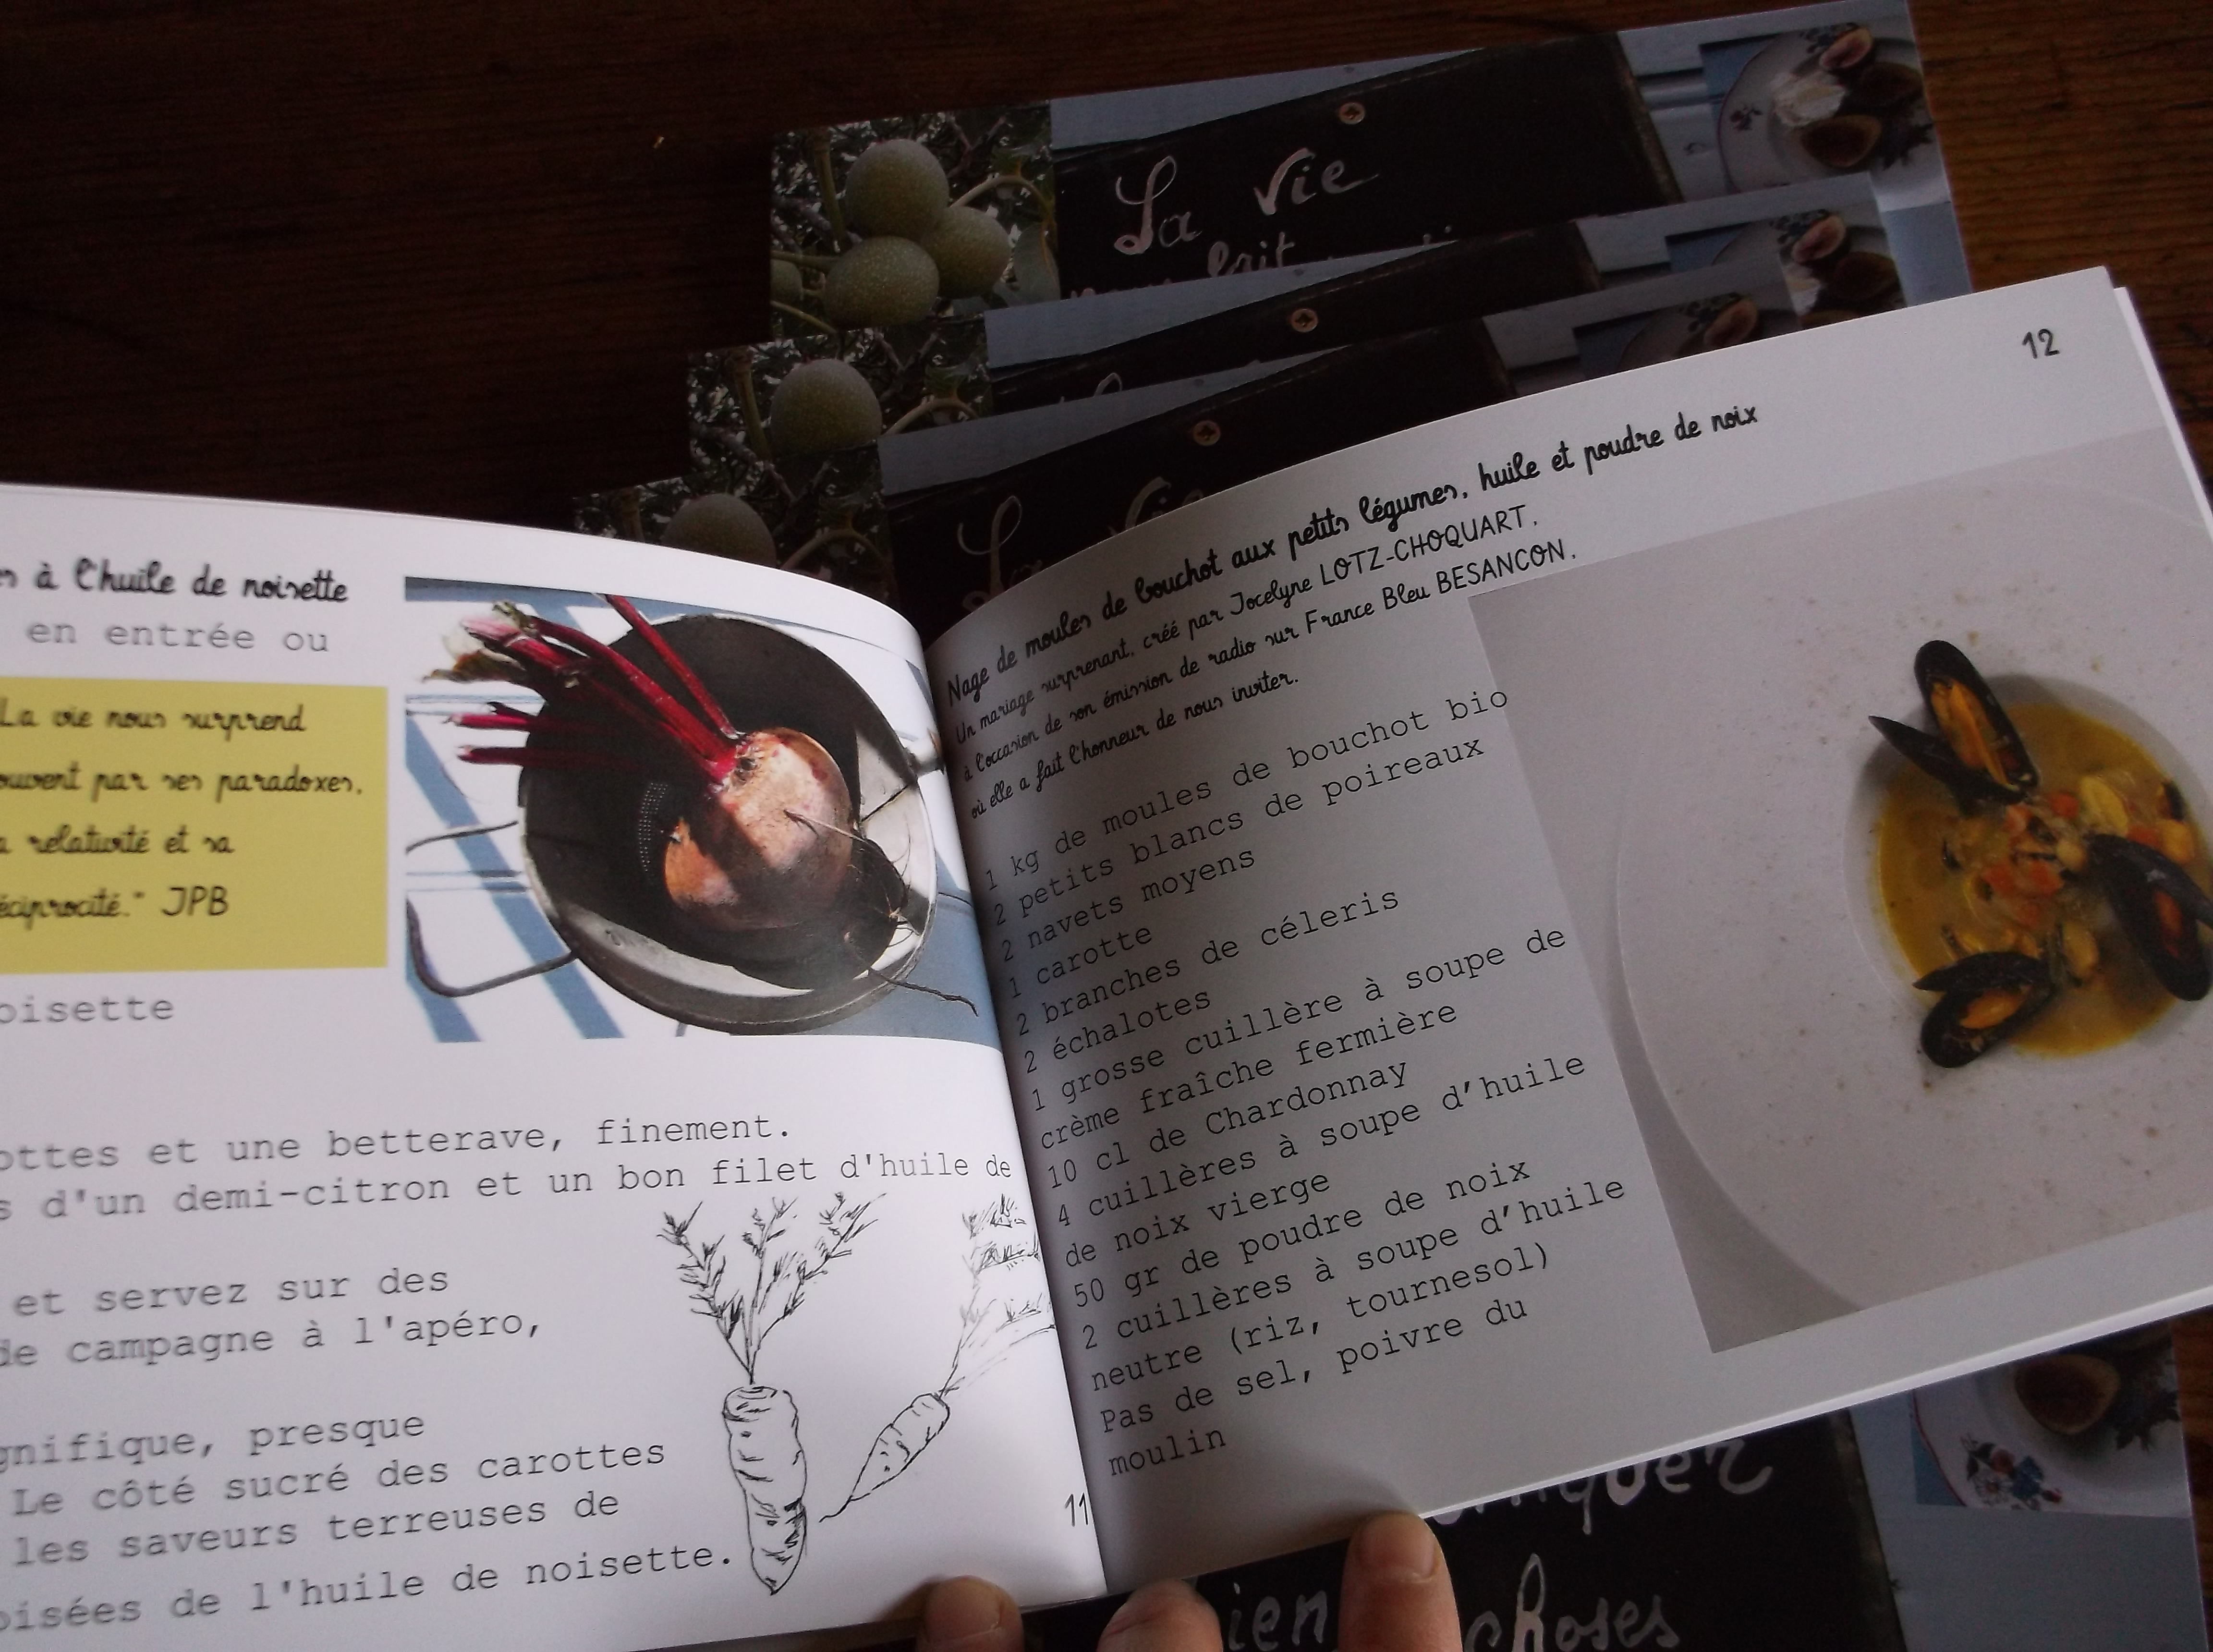 La vie
fait
La Vie
à l'huile de noisette
en entrée ou
La vie nous surprend
par ses paradoxes,
relativité et sa
JPB
et une betterave, finement.
d'un demi-citron et un bon filet d'huile de
et servez sur des
de campagne à l'apéro,
presque
Le côté sucré des carottes
les saveurs terreuses de
de l'huile de noisette.
11
12
Nage de moules de bouchot aux petits légumes, huile et poudre de noix
Un mariage surprenant, créé par Jocelyne LOTZ-CHOQUART,
à l'occasion de son émission de radio sur France Bleu BESANCON,
où elle a fait l'honneur de nous inviter.
1 kg de moules de bouchot bio
2 petits blancs de poireaux
2 navets moyens
1 carotte
2 branches de céleris
2 échalotes
1 grosse cuillère à soupe de
crème fraîche fermière
10 cl de Chardonnay
4 cuillères à soupe d'huile
de noix vierge
50 gr de poudre de noix
2 cuillères à soupe d'huile
neutre (riz, tournesol)
Pas de sel, poivre du
moulin
choses